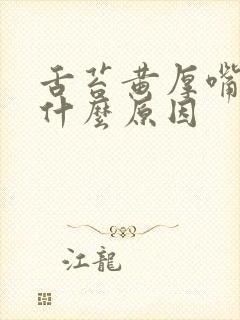 舌苔黄厚嘴
什麼原因
江龍